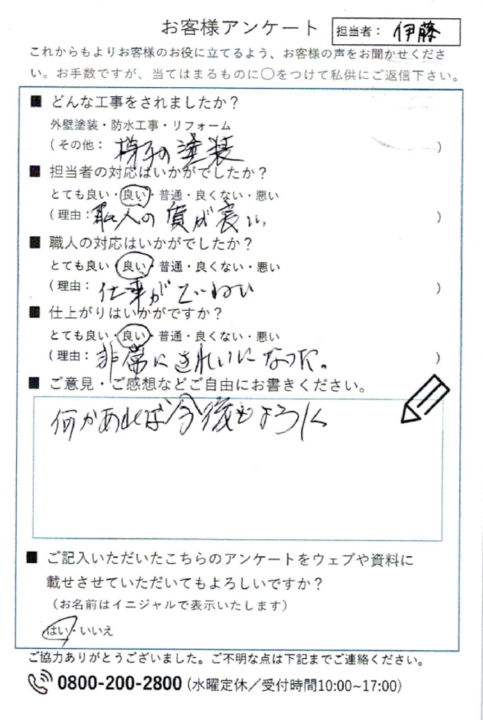 お客様アンケート
担当者: 伊藤
これからもよりお客様のお役に立てるよう、お客様の声をお聞かせくださ
い。お手数ですが、当てはまるものに〇をつけて私供にご返信下さい。
■ どんな工事をされましたか？
外壁塗装・防水工事・リフォーム
(その他: の塗装 )
■ 担当者の対応はいかがでしたか？
とても良い・良い・普通・良くない・悪い
(理由: 職人の質が良い )
■ 職人の対応はいかがでしたか？
とても良い・良い・普通・良くない・悪い
(理由: 仕事がていねい )
■ 仕上がりはいかがですか？
とても良い・良い・普通・良くない・悪い
(理由: 非常にきれいになった。 )
■ ご意見・ご感想などご自由にお書きください。
何かあれば今後もよろしく
■ ご記入いただいたこちらのアンケートをウェブや資料に
載せさせていただいてもよろしいですか？
(お名前はイニジャルで表示いたします)
はい・いいえ
ご協力ありがとうございました。ご不明な点は下記までご連絡ください。
0800-200-2800 (水曜定休／受付時間10:00~17:00)